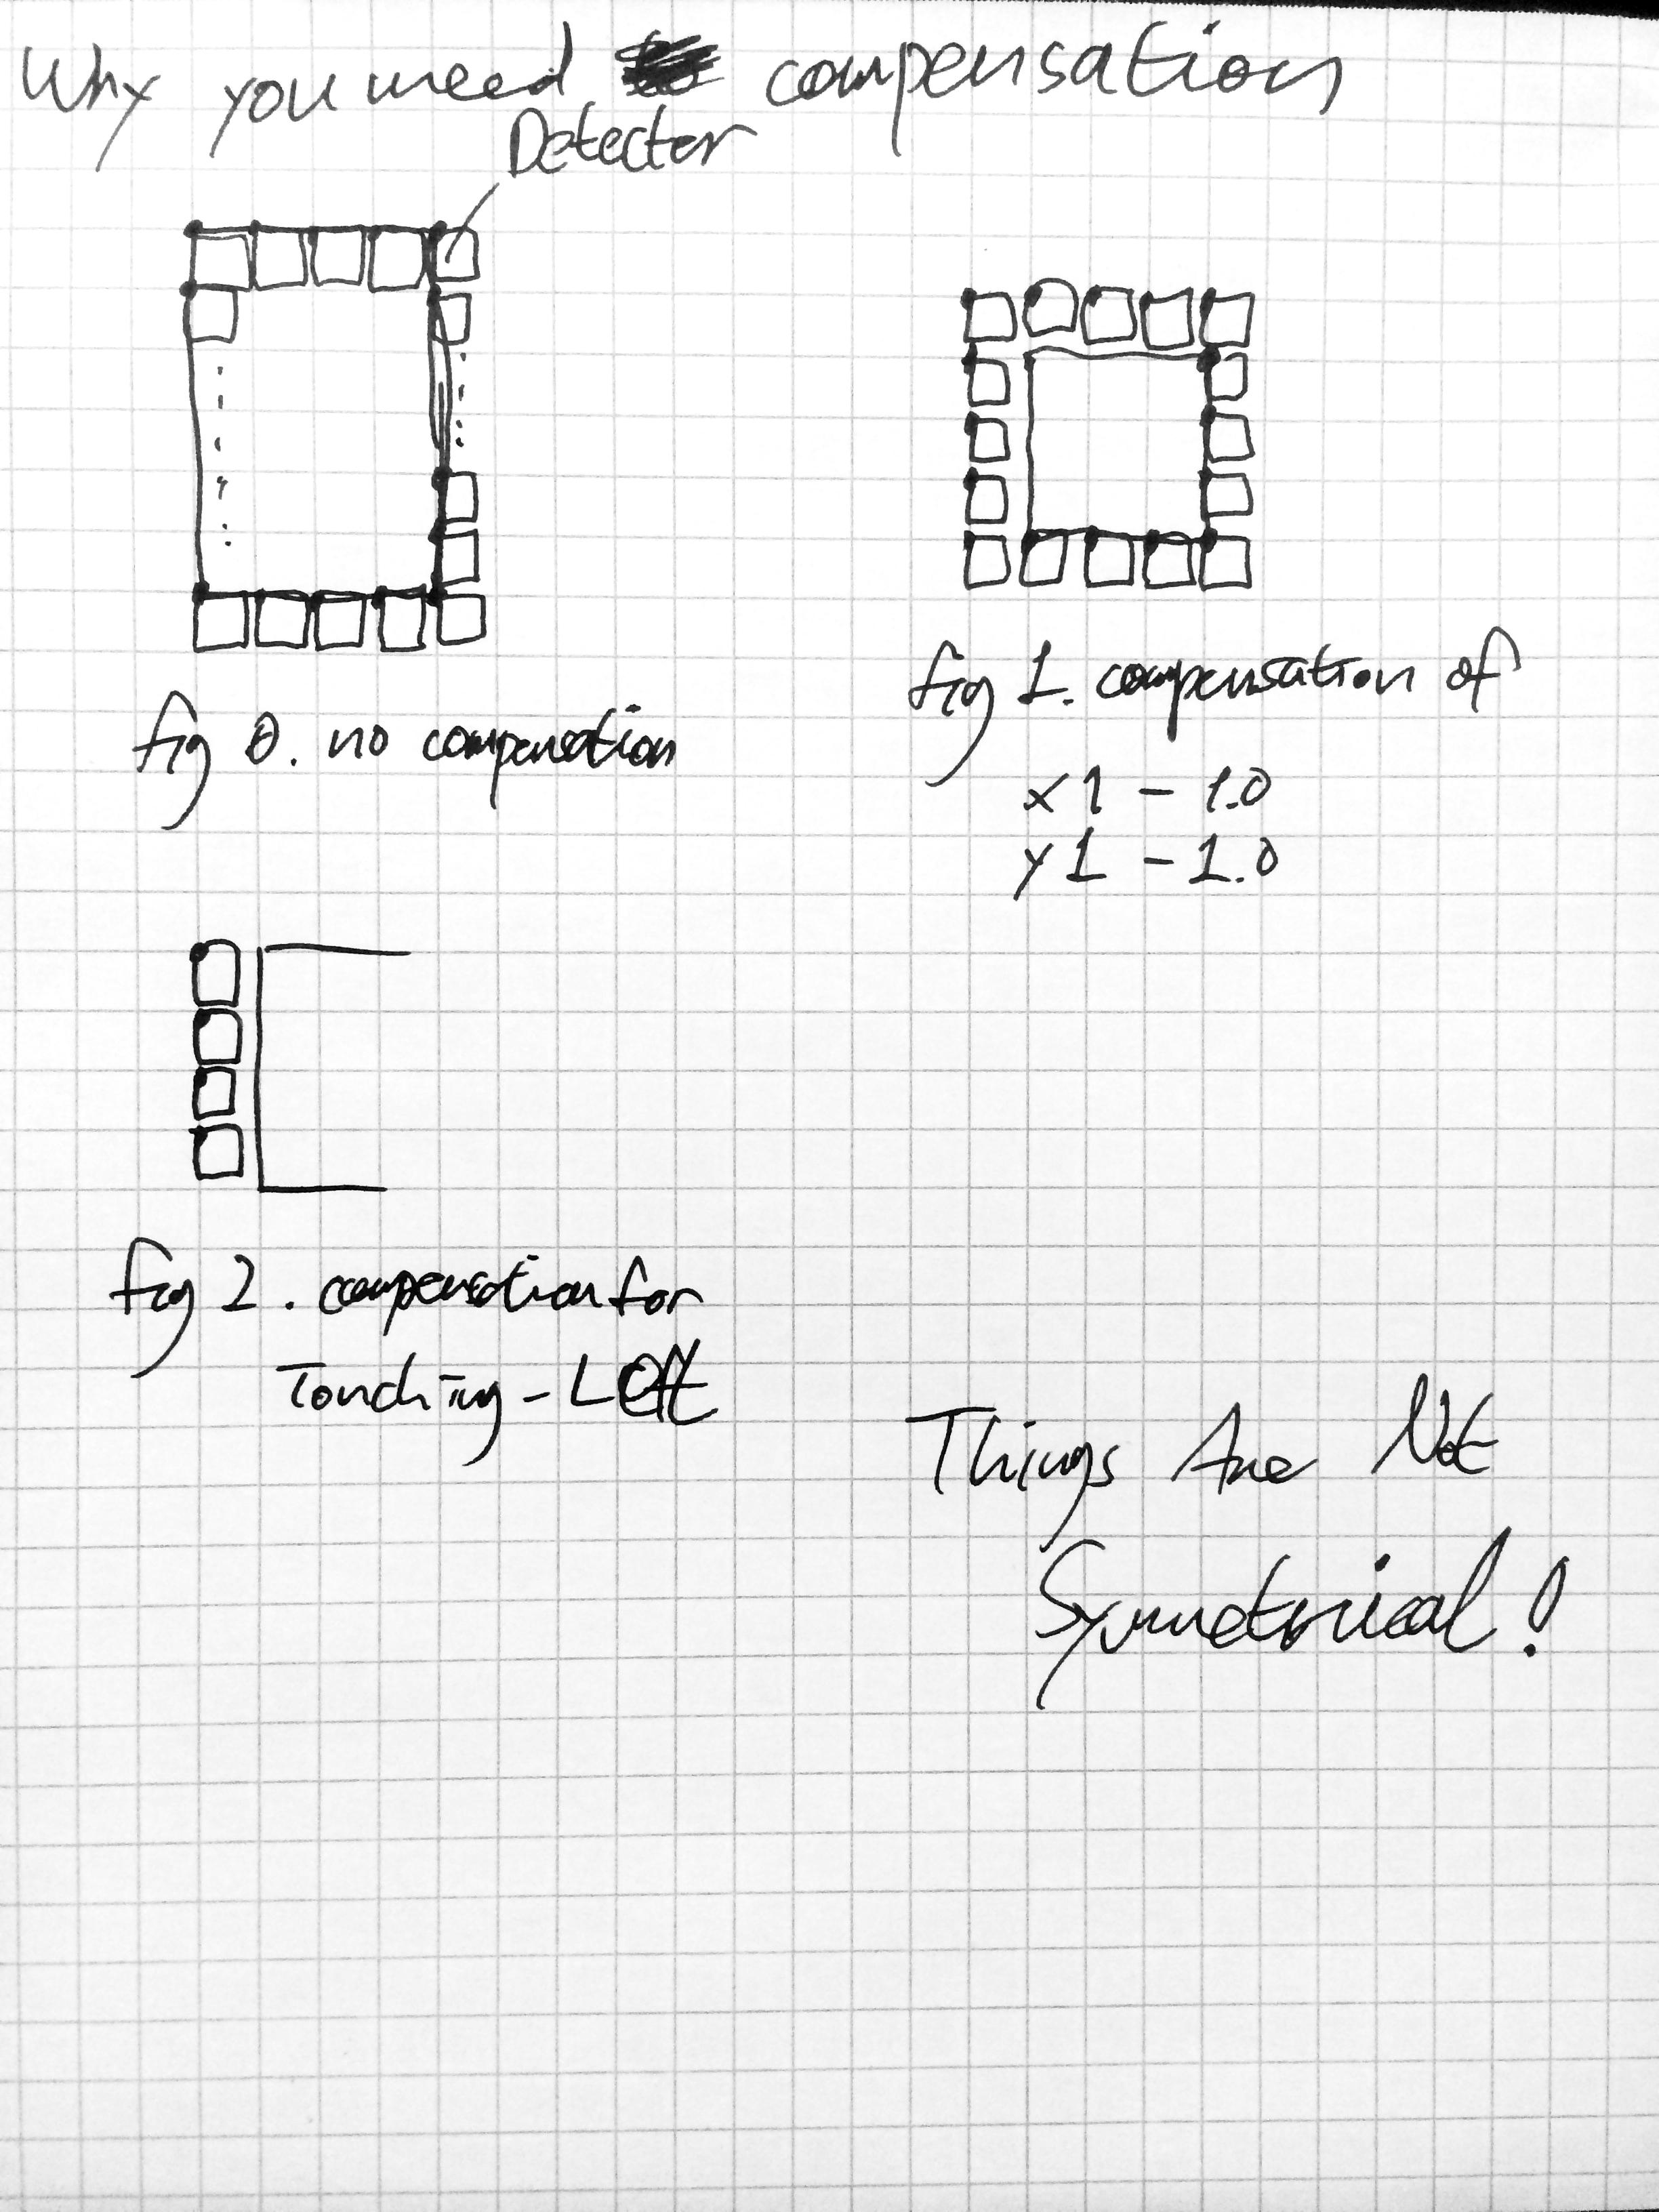 Why you need compensation
Detector
fig 0. no compensation
fig 1. compensation of
x1 - 1.0
y1 - 1.0
fig 2. compensation for
Touching-Left
Things Are Not
Symmetrical!